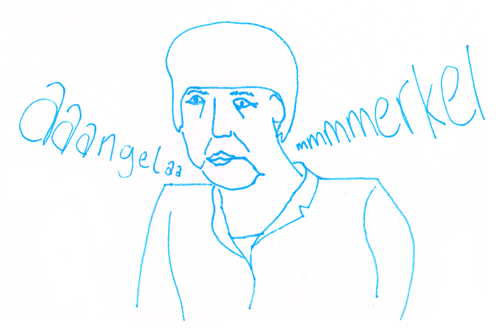 aaangelaa
mmmmerkel